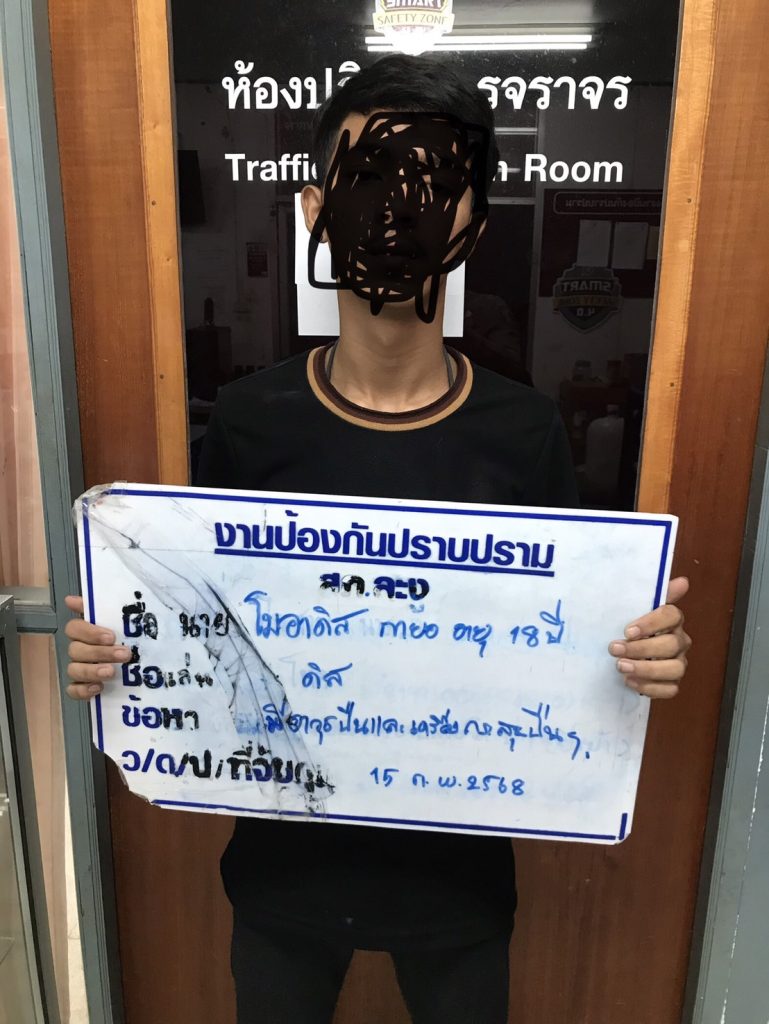 SMART
SAFETY ZONE
ห้องป
รจราจร
Traffic
Room
SMART
SAFETY ZONE
4.0
งานป้องกันปราบปราม
สภ.จะงุ
ชื่อ นาย โมฮาดิส อายุ 18 ปี
ชื่อเล่น ดิส
ข้อหา มีอาวุธปืนและเครื่องกระสุนปืนฯ
ว/ด/ป/ที่จับกุม 15 ก.พ.2568